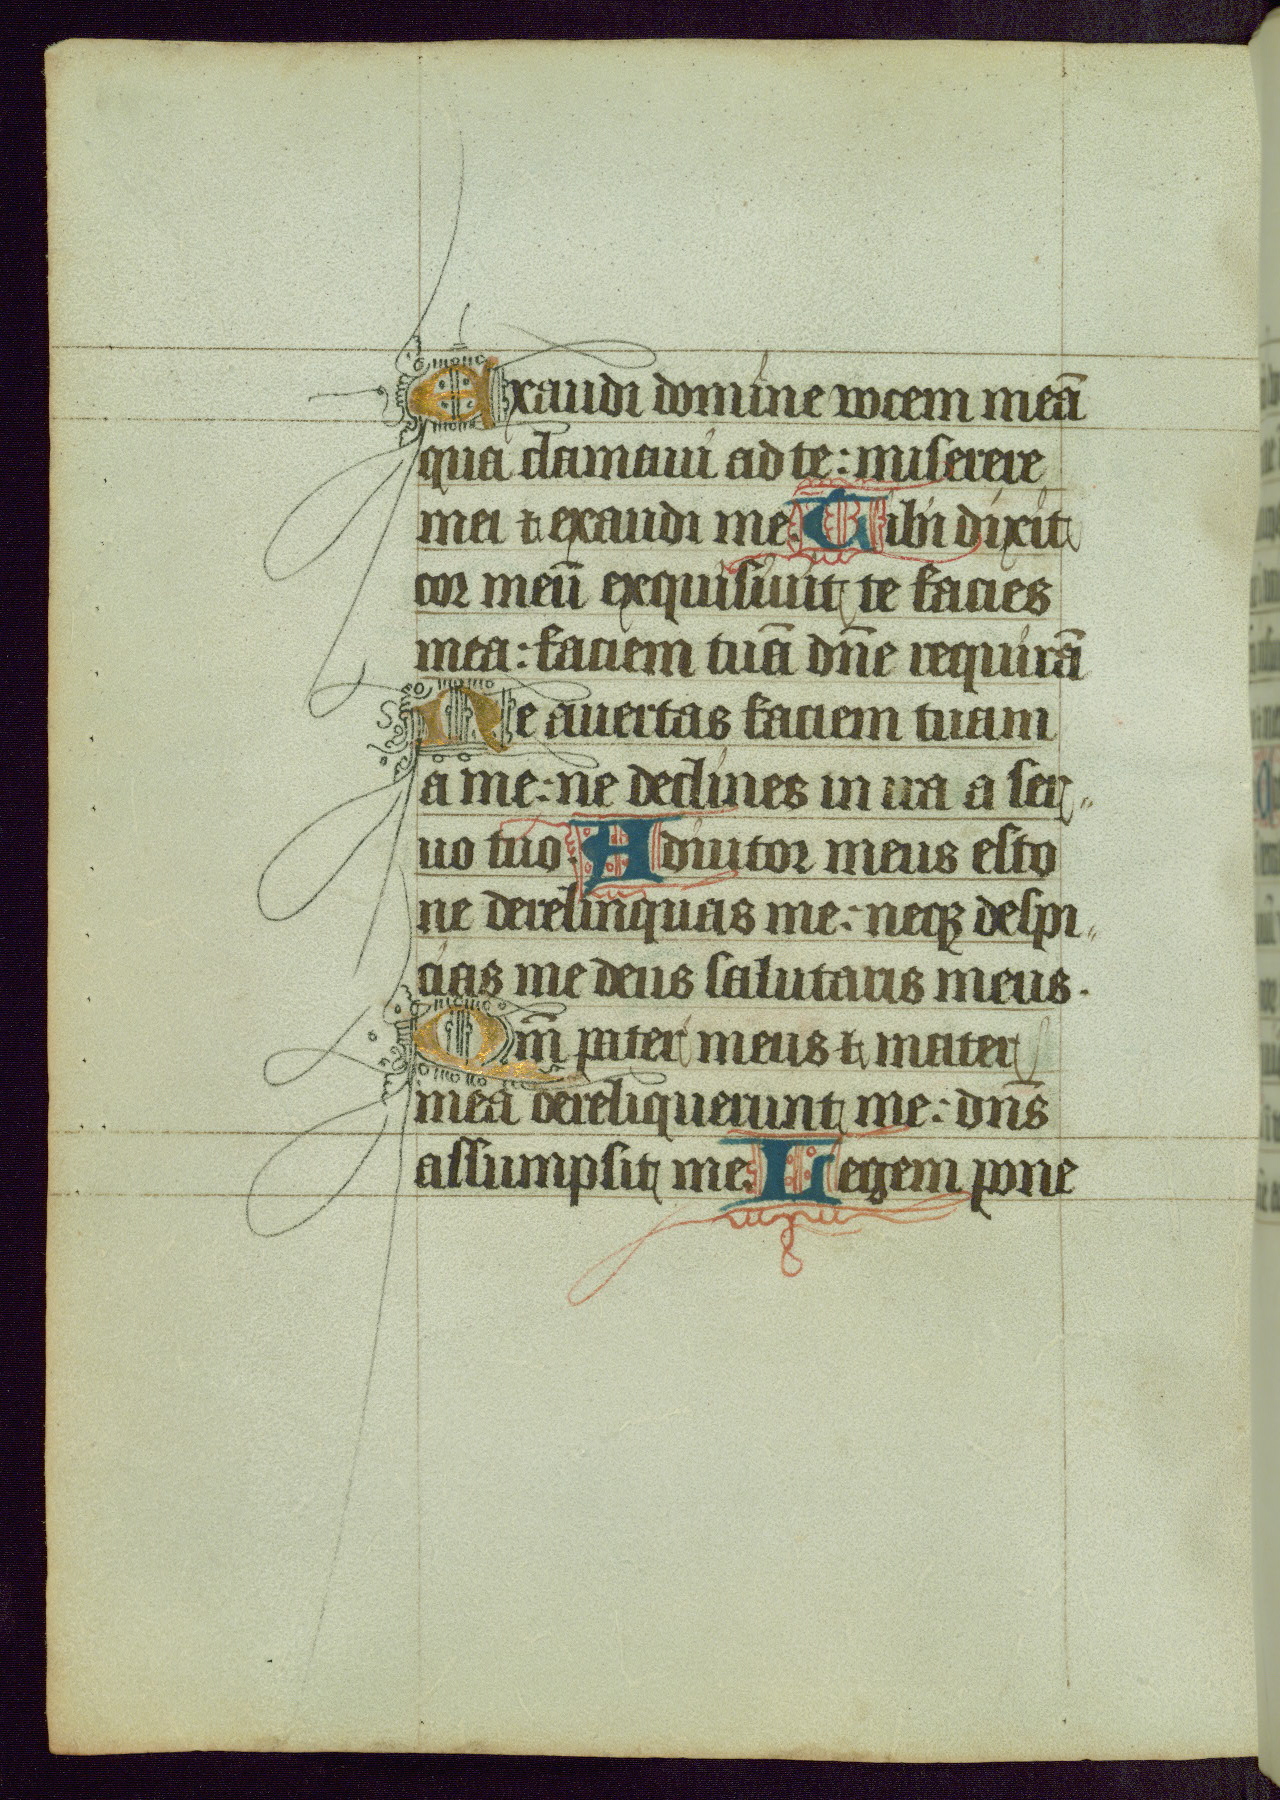 Exaudi domine vocem meā
qua clamaui ad te: miserere
mei ⁊ exaudi me. Tibi dixit
cor meū exquisiuit te facies
mea: faciem tuā dn̄e requirā
Ne auertas faciem tuam
a me: ne declines in ira a ser„
uo tuo. Adiutor meus esto
ne derelinquas me: neqꝫ despi„
cias me deus salutaris meus.
Qm̄ pater meus ⁊ mater
mea dereliquerunt me: dn̄s
assumpsit me. Legem pone